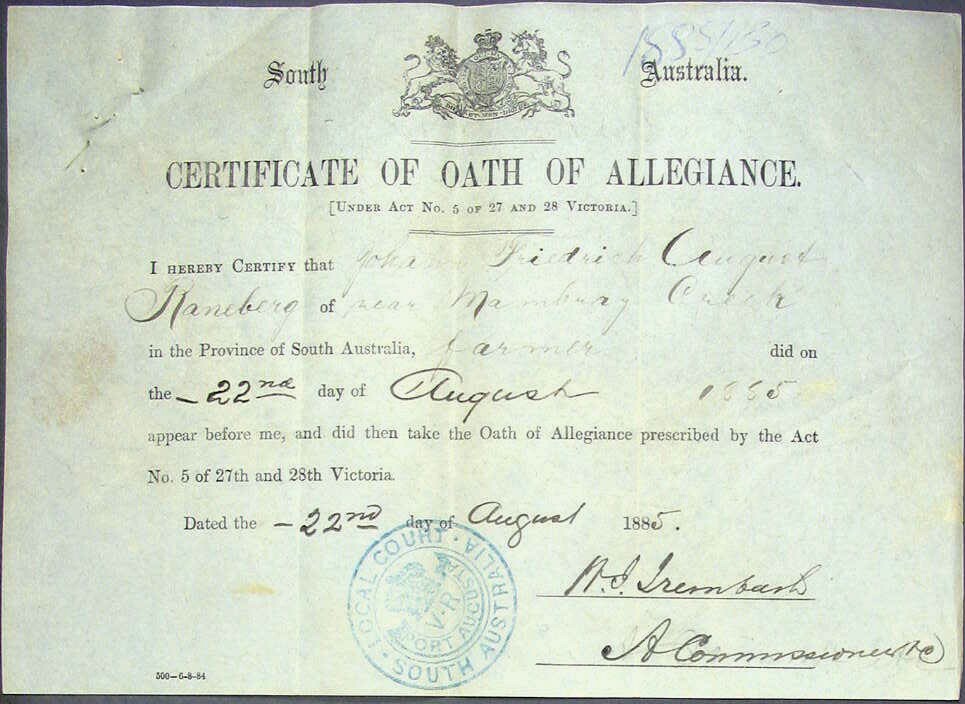 1885/130
South Australia.
CERTIFICATE OF OATH OF ALLEGIANCE.
[UNDER ACT No. 5 OF 27 AND 28 VICTORIA.]
I HEREBY CERTIFY that Johann Friedrich August
Raneberg of near Mambray Creek
in the Province of South Australia, farmer did on
the - 22nd day of August 1885
appear before me, and did then take the Oath of Allegiance prescribed by the Act
No. 5 of 27th and 28th Victoria.
Dated the - 22nd day of August 1885.
LOCAL COURT · PORT AUGUSTA
V·R
· SOUTH AUSTRALIA ·
A Commissioner &c
500—6-8-84